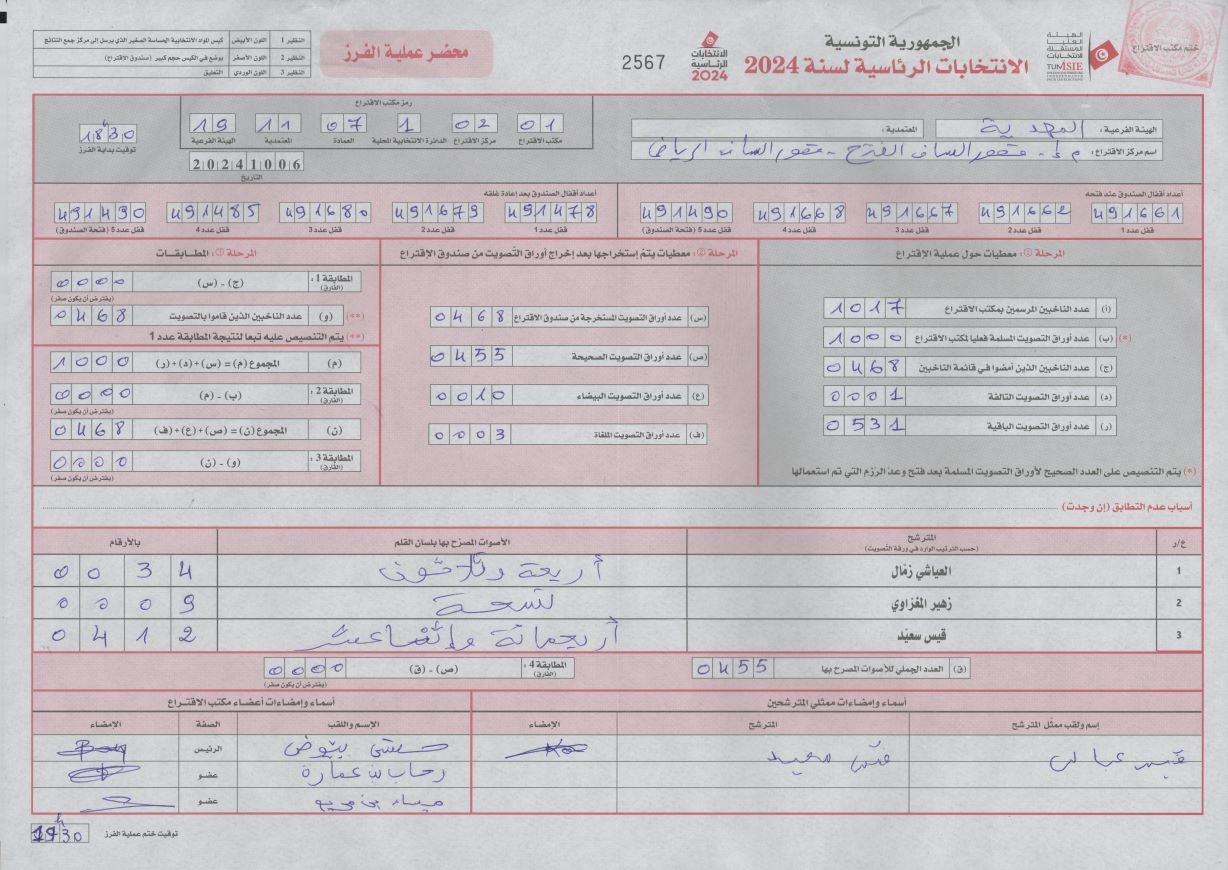 ختم مكتب الاقتراع
الهيئة العليا المستقلة للانتخابات
TUNISIE
الجمهورية التونسية
الانتخابات الرئاسية لسنة 2024
الانتخابات الرئاسية 2024
2567
محضر عملية الفرز
النظير 1 اللون الأبيض كيس المواد الانتخابية الحساسة الصغير الذي يرسل إلى مركز جمع النتائج
النظير 2 اللون الأصفر يوضع في الكيس حجم كبير (صندوق الاقتراع)
النظير 3 اللون الوردي التعليق
الهيئة الفرعية : المهدية
المعتمدية :
اسم مركز الاقتراع :
رمز مكتب الاقتراع
01 02 1 07 11 19
مكتب الاقتراع مركز الاقتراع الدائرة الانتخابية المحلية العمادة المعتمدية الهيئة الفرعية
20241006
التاريخ
18h30
توقيت بداية الفرز
أعداد أقفال الصندوق عند فتحه
491661 491662 491667 491668 491490
قفل عدد 1 قفل عدد 2 قفل عدد 3 قفل عدد 4 قفل عدد 5 (فتحة الصندوق)
أعداد أقفال الصندوق بعد إعادة غلقه
491478 491679 491680 491485 491430
قفل عدد 1 قفل عدد 2 قفل عدد 3 قفل عدد 4 قفل عدد 5 (فتحة الصندوق)
المرحلة ①: معطيات حول عملية الإقتراع
(أ) عدد الناخبين المرسمين بمكتب الاقتراع 1017
(*) (ب) عدد أوراق التصويت المسلمة فعليا لمكتب الاقتراع 1000
(ج) عدد الناخبين الذين أمضوا في قائمة الناخبين 0468
(د) عدد أوراق التصويت التالفة 0001
(ر) عدد أوراق التصويت الباقية 0531
(*) يتم التنصيص على العدد الصحيح لأوراق التصويت المسلمة بعد فتح وعد الرزم التي تم استعمالها
المرحلة ②: معطيات يتم إستخراجها بعد إخراج أوراق التصويت من صندوق الإقتراع
(س) عدد أوراق التصويت المستخرجة من صندوق الاقتراع 0468
(ص) عدد أوراق التصويت الصحيحة 0455
(ع) عدد أوراق التصويت البيضاء 0010
(ف) عدد أوراق التصويت الملغاة 0003
المرحلة ③: المطابقات
المطابقة 1 : (الفارق) (ج) - (س) 0000
(يفترض أن يكون صفر)
(**) (و) عدد الناخبين الذين قاموا بالتصويت 0468
(**) يتم التنصيص عليه تبعا لنتيجة المطابقة عدد 1
(م) المجموع (م) = (س) + (د) + (ر) 1000
المطابقة 2 : (الفارق) (ب) - (م) 0000
(يفترض أن يكون صفر)
(ن) المجموع (ن) = (ص) + (ع) + (ف) 0468
المطابقة 3 : (الفارق) (و) - (ن) 0000
(يفترض أن يكون صفر)
أسباب عدم التطابق (إن وجدت)
ع/ر المترشح الأصوات المصرّح بها بلسان القلم بالأرقام
(حسب الترتيب الوارد في ورقة التصويت)
1 العياشي زمّال أربعة وثلاثون 0034
2 زهير المغزاوي تسعة 0009
3 قيس سعيّد أربعمائة وإثنا عشر 0412
(ق) العدد الجملي للأصوات المصرح بها 0455
المطابقة 4 : (الفارق) (ص) - (ق) 0000
(يفترض أن يكون صفر)
أسماء وإمضاءات ممثلي المترشحين
إسم ولقب ممثّل المترشح المترشح الإمضاء
قيس سعيد
أسماء وإمضاءات أعضاء مكتب الاقتراع
الإسم واللقب الصفة الإمضاء
الرئيس
رحاب بن عمارة عضو
عضو
توقيت ختم عملية الفرز
19h30